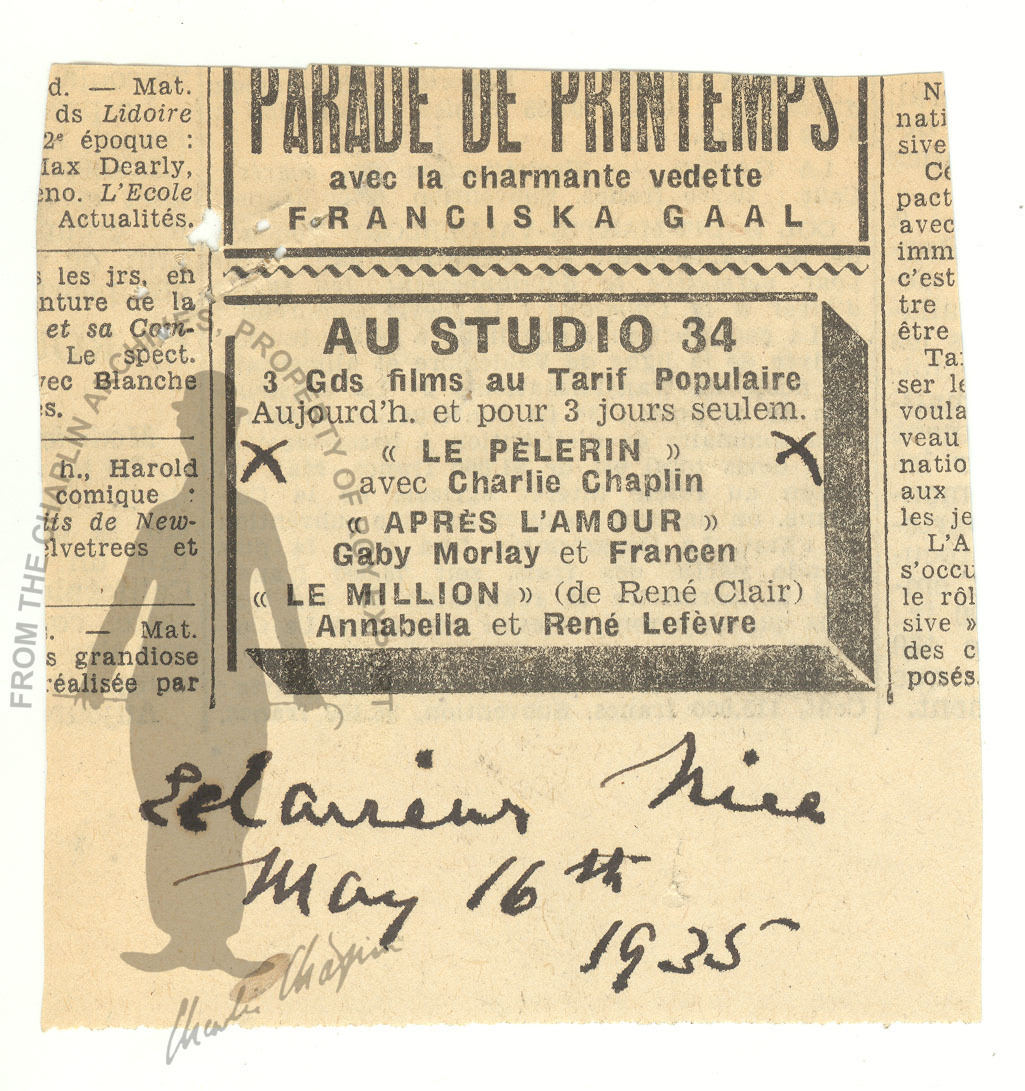 d. — Mat.
ds Lidoire
2e époque :
Max Dearly,
eno. L'Ecole
Actualités.
s les jrs, en
nture de la
et sa Com-
Le spect.
vec Blanche
es.
h., Harold
comique :
its de New-
elvetrees et
s. — Mat.
s grandiose
réalisée par
PARADE DE PRINTEMPS
avec la charmante vedette
FRANCISKA GAAL
AU STUDIO 34
3 Gds films au Tarif Populaire
Aujourd'h. et pour 3 jours seulem.
« LE PÈLERIN »
avec Charlie Chaplin
« APRÈS L'AMOUR »
Gaby Morlay et Francen
« LE MILLION » (de René Clair)
Annabella et René Lefèvre
N
nati
sive
Ce
pact
avec
imm
c'est
tre
être
Tai
ser le
voula
veau
natio
aux
les je
L'A
s'occu
le rôl
sive »
des c
posés.
Eclaireur Nice
May 16th
1935
FROM THE CHAPLIN ARCHIVES, PROPERTY OF ROY EXPORT
Charlie Chaplin